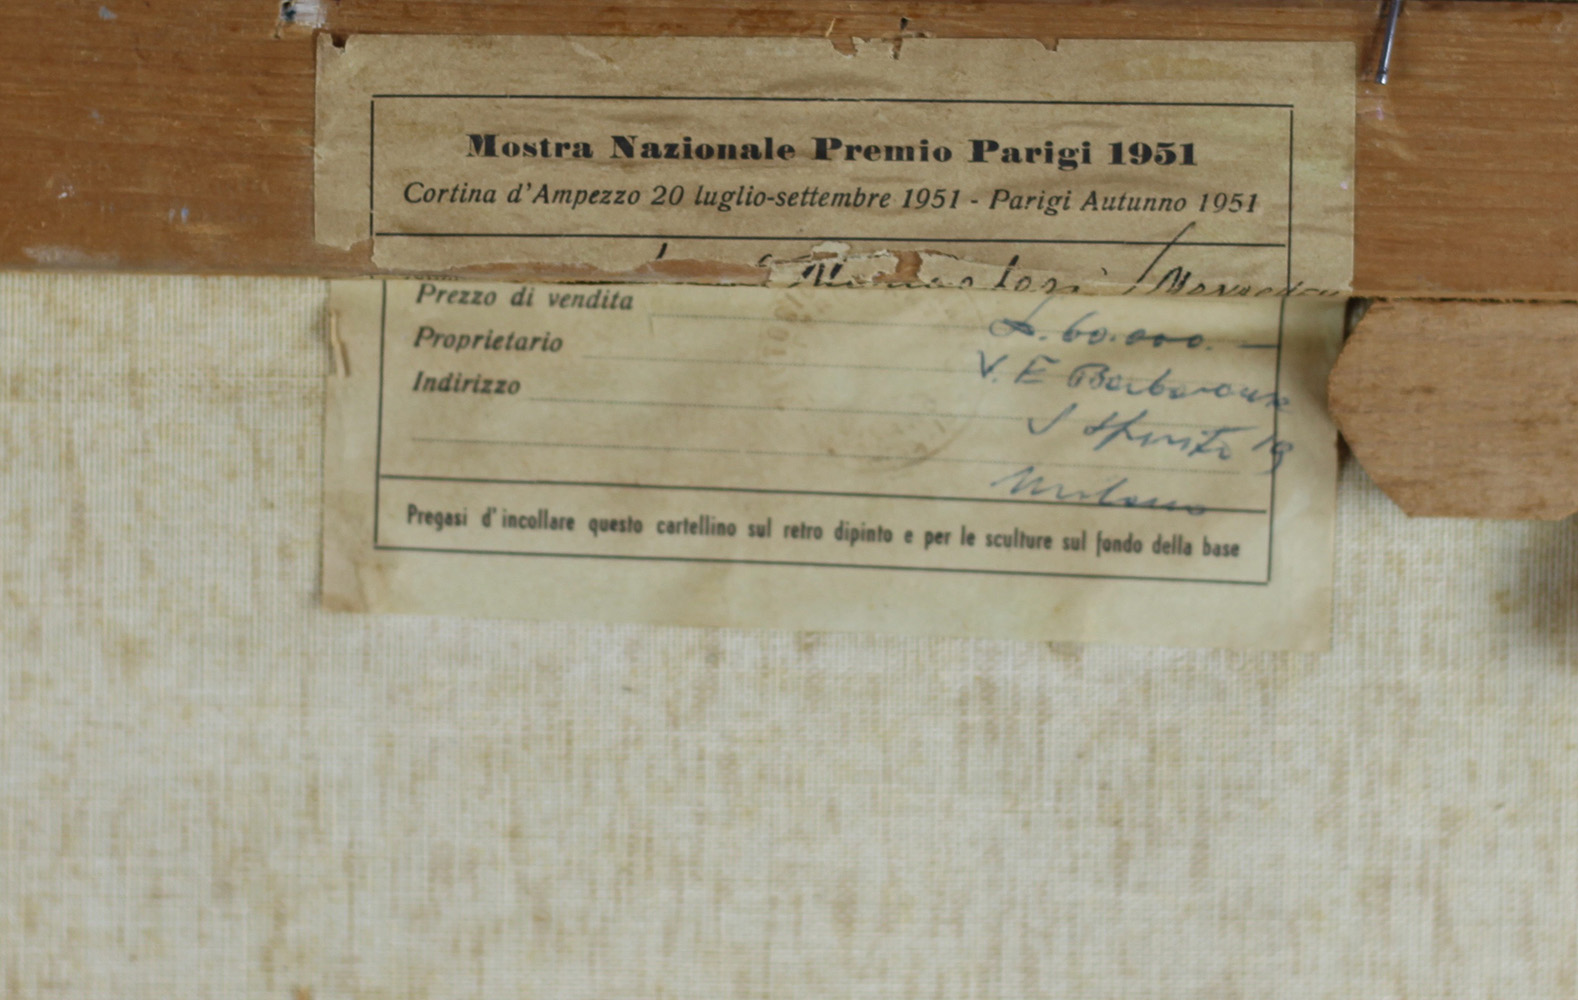 Mostra Nazionale Premio Parigi 1951
Cortina d'Ampezzo 20 luglio-settembre 1951 - Parigi Autunno 1951
Prezzo di vendita L. 60.000. —
Proprietario V. E Barbaroux
Indirizzo S Spirito 19
Milano
Pregasi d'incollare questo cartellino sul retro dipinto e per le sculture sul fondo della base